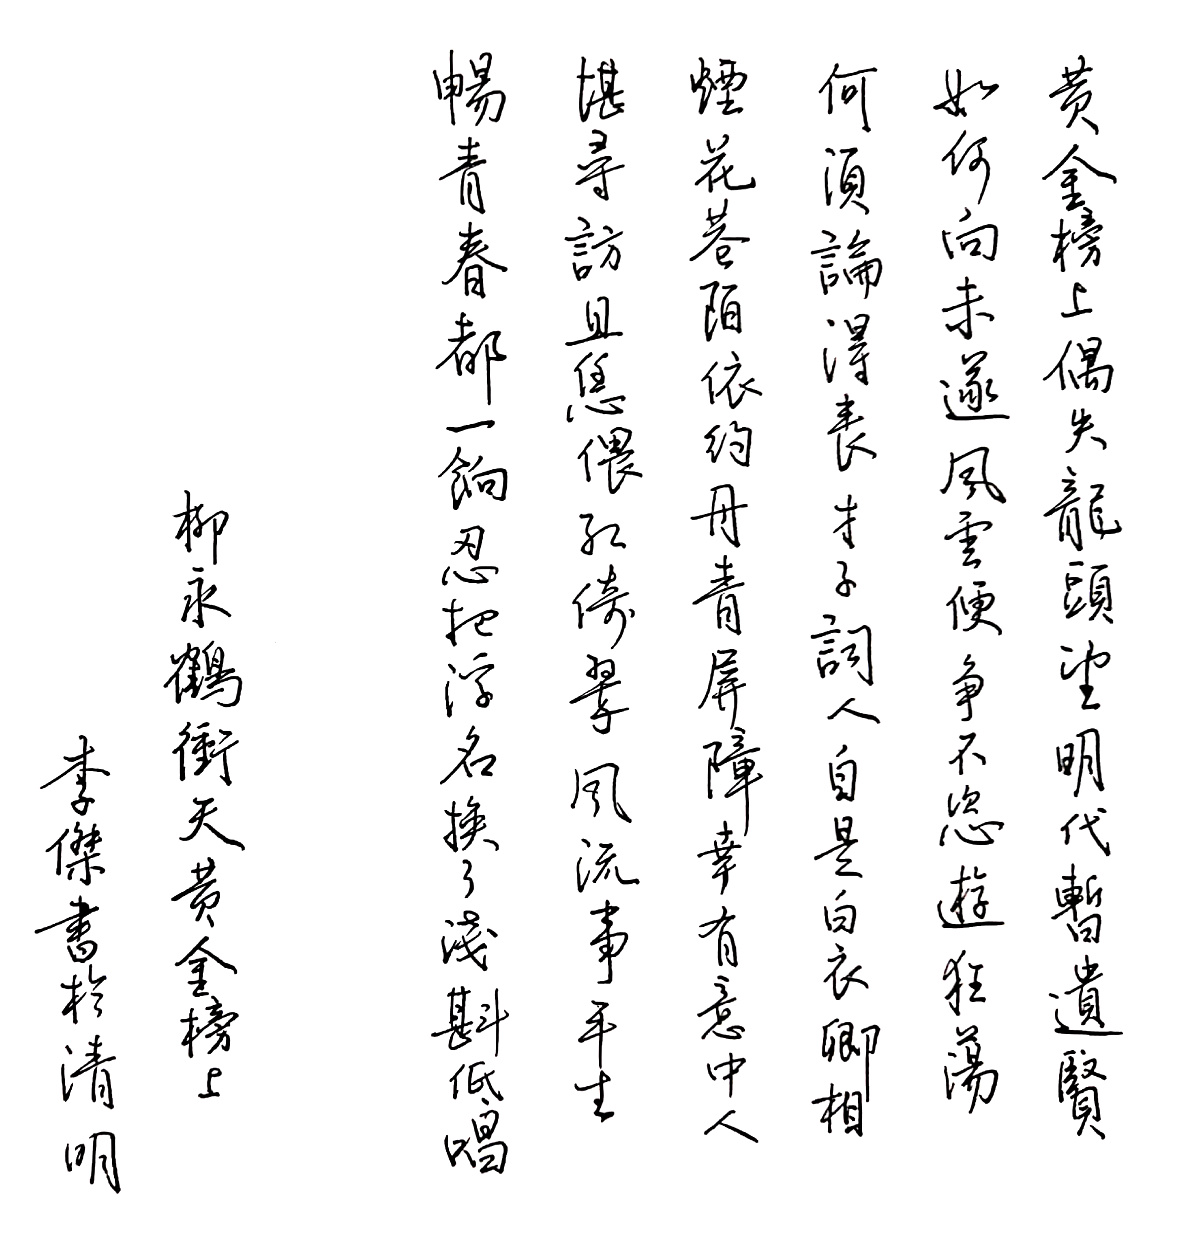 黄金榜上偶失龍頭望明代暫遺賢
如何向未遂風雲便争不恣遊狂蕩
何須論得喪才子詞人自是白衣卿相
煙花巷陌依約丹青屏障幸有意中人
堪尋訪且恁偎紅倚翠風流事平生
暢青春都一餉忍把浮名換了淺斟低唱
柳永鶴衝天黄金榜上
李傑書於清明